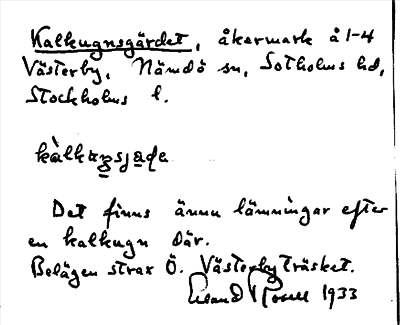 Kalkugnsgärdet, åkermark å 1-4
Västerby, Nämdö sn, Sotholms hd,
Stockholms l.
kàlkuṉsjạde
Det finns ännu lämningar efter
en kalkugn där.
Belägen strax Ö. Västerbyträsket.
1933